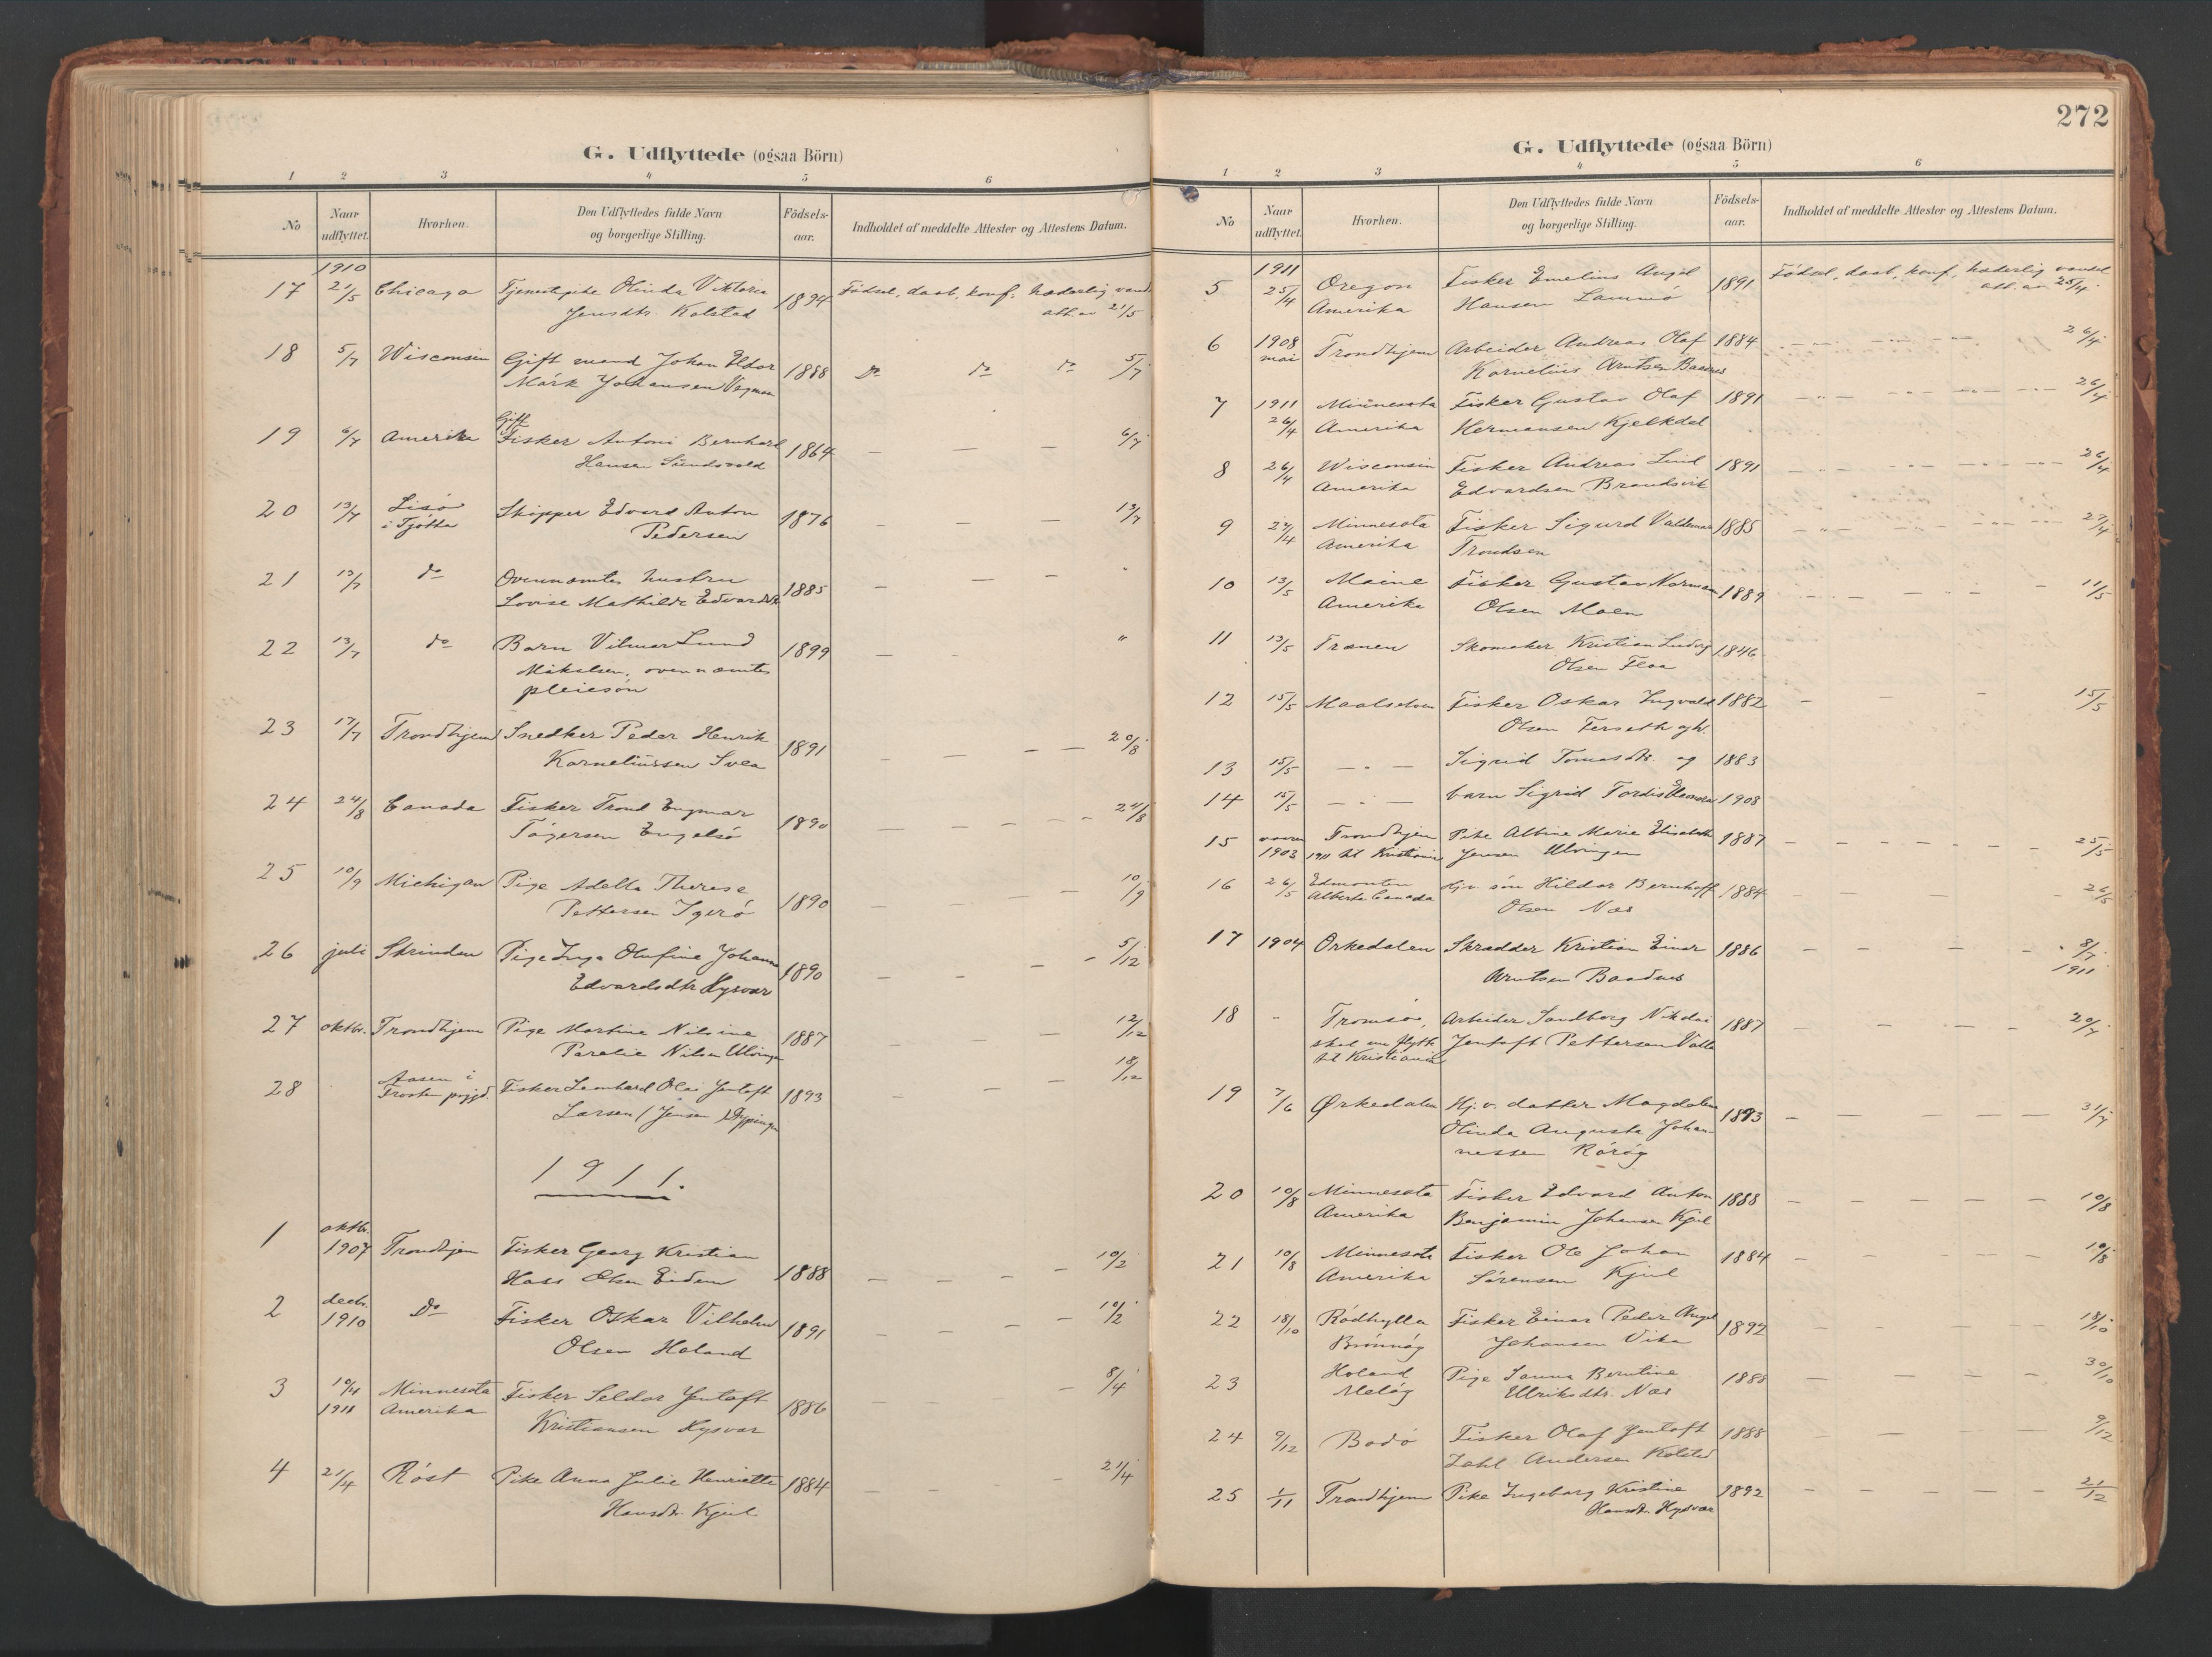 G. Udflyttede (ogsaa Börn)
1 2 3 4 5 6
No Naar udflyttet. Hvorhen. Den Udflyttedes fulde Navn og borgerlige Stilling. Födsels-aar. Indholdet af meddelte Attester og Attestens Datum.
1910
17 21/5 Chicago Tjenestepike Olinda Viktoria 1894 Födsel, daab, konf, hæderlig vand.
Jensdtr. Kolstad att. av 21/5
18 5/7 Wisconsin Gift mand Johan Eldor 1888 Do do do 5/7
Mörk Johansen
Gift
19 6/7 Amerika Fisker Antoni Bernhard 1864 — — — 6/7
Hansen Sundsvold
20 13/7 Lisö Skipper Edvard Anton 1876 — — — 13/7
i Tjötta Pedersen
21 13/7 do Ovennævntes hustru 1885 — — — "
Lovise Mathilde Edvardsdtr
22 13/7 do Barn Vilmar Lund 1899 — - "
Mikalsen, ovennævntes
pleiesön
23 17/7 Trondhjem Snedker Peder Henrik 1891 — — — — 20/8
Korneliussen Svea
24 24/8 Canada Fisker Trond Engmar 1890 — — — — — 24/8
Tögersen Engelsö
25 10/9 Michigan Pige Adella Therese 1890 — — — — 10/9
Pettersen Igerö
26 juli Strinden Pige Inga Olufine Johanna 1890 — — — — 5/12
Edvardsdtr Hysvær
27 oktbr. Trondhjem Pige Martine Nilsine 1887 — — — — 12/12
Parelie Nilsen Ulvingen
28 Aasen i Fisker Leonhard Olai Jentoft 1893 — — — 18/12
Frosta prgjd. Larsen / Jensen
1911.
1 oktbr. 1907 Trondhjem Fisker Georg Kristian 1888 — — — — 10/2
Hass Olsen Eidem
2 decbr. 1910 Do Fisker Oskar Vilhelm 1891 — — — — 10/2
Olsen Holand
3 10/4 1911 Minnesota Fisker Seldor Jentoft 1886 — — — 8/4
Amerika Kristiansen Hysvær
4 21/4 Röst Pike Anna Julie Henriette 1884 — — - 21/4
Hansdtr. Kjul
272
G. Udflyttede (ogsaa Börn)
1 2 3 4 5 6
No Naar udflyttet. Hvorhen. Den Udflyttedes fulde Navn og borgerlige Stilling. Födsels-aar. Indholdet af meddelte Attester og Attestens Datum.
1911
5 25/4 Oregon Fisker Emelius Angel 1891 Födsel, daab, konf, hæderlig vandel
Amerika Hansen Lammö att. av 25/4.
6 1908 mai Trondhjem Arbeider Andreas Olaf 1884 — — — — 26/4
Kornelius Arntsen Baadnes
7 1911 26/4 Minnesota Fisker Gustav Olaf 1891 — — — — 26/4
Amerika Hermansen Kjelkdal
8 26/4 Wisconsin Fisker Andreas Lind 1891 — — — — 26/4
Amerika Edvardsen Brandsvik
9 27/4 Minnesota Fisker Sigurd Valdemar 1885 — — — — 27/4
Amerika Trondsen
10 13/5 Maine Fisker Gustav Norman 1889 — — — — 11/5
Amerika Olsen Moen
11 13/5 Trænen Skomaker Kristian Ludvig 1846
Olsen Floa
12 15/5 Maalselven Fisker Oskar Ingvald 1882 — — — — 15/5
Olsen Forseth og h.
13 15/5 — " — Sigrid Tomasdtr. og 1883
14 15/5 — " — barn Sigrid Tordis Eleonora 1908
15 vaaren 1903 Trondhjem Pike Albine Marie Elisabeth 1887 — — — — — 25/5
1911 til Kristiania Jensen Ulvingen
16 26/5 Edmonton Hj.v. sön Hildor Bernhoff 1884 — — — — 26/5
Alberta Canada Olsen Næs
17 1904 Orkedalen Skrædder Kristian Einar 1886 — — — — 8/7
Arntsen Baadnes 1911
18 - Tromsö, Arbeider Sandberg Nikolai 1887 — — — — 20/7
skal nu flytte Jentoft Pettersen Valla
til Kristiania
19 7/6 Ørkedalen Hj.v. datter Magdalena 1893 — — — — 31/7
Olinda Augusta Johan-
nessen Rörög
20 10/8 Minnesota Fisker Edvard Anton 1888 — — — — — 10/8
Amerika Benjamin Johansen Kjul
21 10/8 Minnesota Fisker Ole Johan 1884 — — — — — 10/8
Amerika Sörensen Kjul
22 18/10 Rödhylla Fisker Einar Peder Angel 1892 — — — — — 18/10
Brönnög Johansen Vika
23 Holand Pige Sanna Berntine 1888 — — — — — 30/10
Melög Ulriksdtr. Næs
24 9/12 Bodö Fisker Olaf Jentoft 1888 — — — — — 9/12
Zahl Andersen Kolstad
25 1/11 Trondhjem Pike Ingeborg Kristine 1892 — — — — — 21/12
Hansdtr. Hysvær